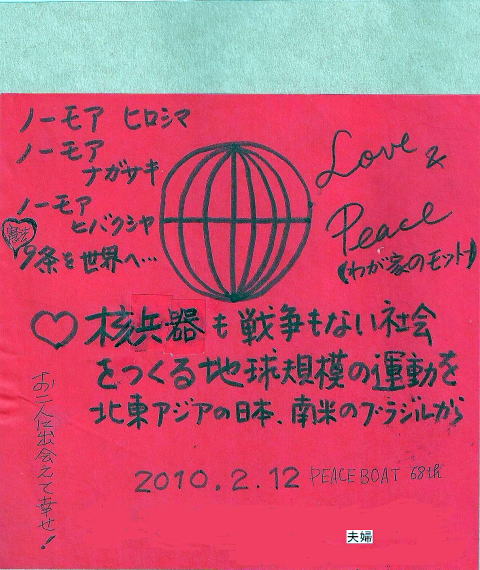 ノーモア ヒロシマ
ノーモア
ナガサキ
ノーモア
ヒバクシャ
憲法
9条を世界へ…
Love &
Peace
(わが家のモットー)
♡核兵器も戦争もない社会
をつくる地球規模の運動を
北東アジアの日本、南米のブラジルから
お二人に出会えて幸せ!
2010.2.12 PEACE BOAT 68th
夫婦